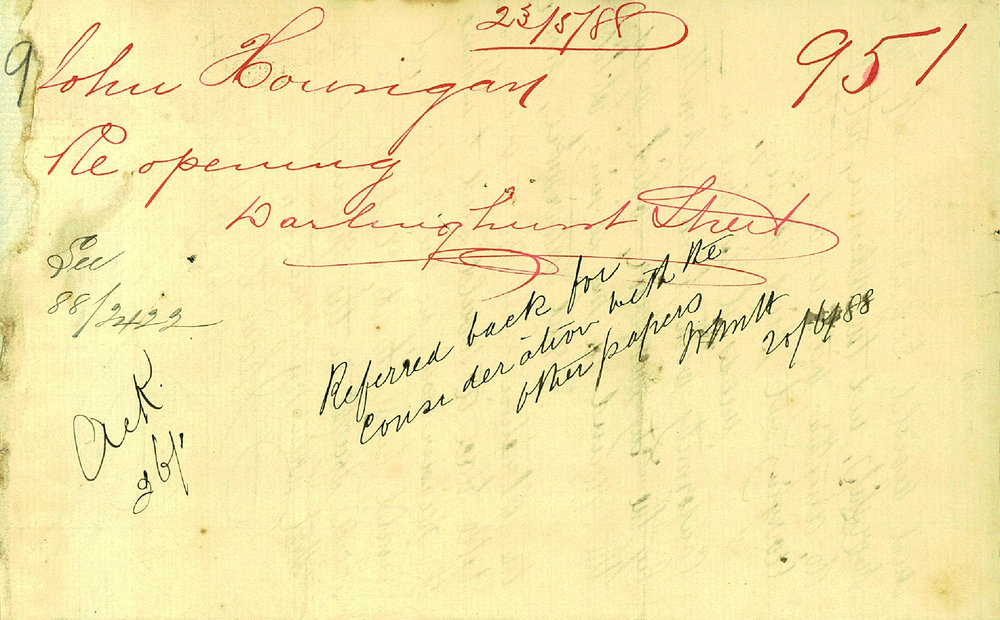 23/5/88
951
9
John Hourigan
Re opening
Darlinghurst Street
See
88/2422
Referred back for
consideration with the
other papers
20/6/88
Ack.